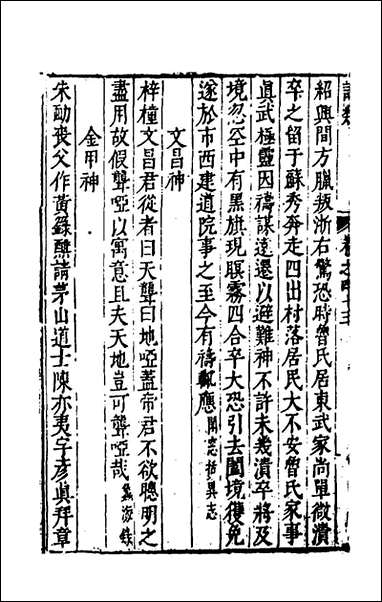 紹興間方臘叛浙右驚恐時曾氏居東武家尚單微潰
卒之留于蘇秀奔走四出村落居民大不安曾氏家事
眞武極靈因禱謀遠還以避難神不許未幾潰卒將及
境忽空中有黑旗現賜霧四合卒大恐引去闔境獲免
遂於市西建道院事之至今有禱輒應閒窓括異志
文昌神
梓橦文昌君從者曰天聾曰地啞蓋帝君不欲聰明之
盡用故假聾啞以寓意且夫天地豈可聾啞哉蠡海錄
金甲神
朱勔喪父作黃籙醮請茅山道士陳亦夷字彥眞拜章